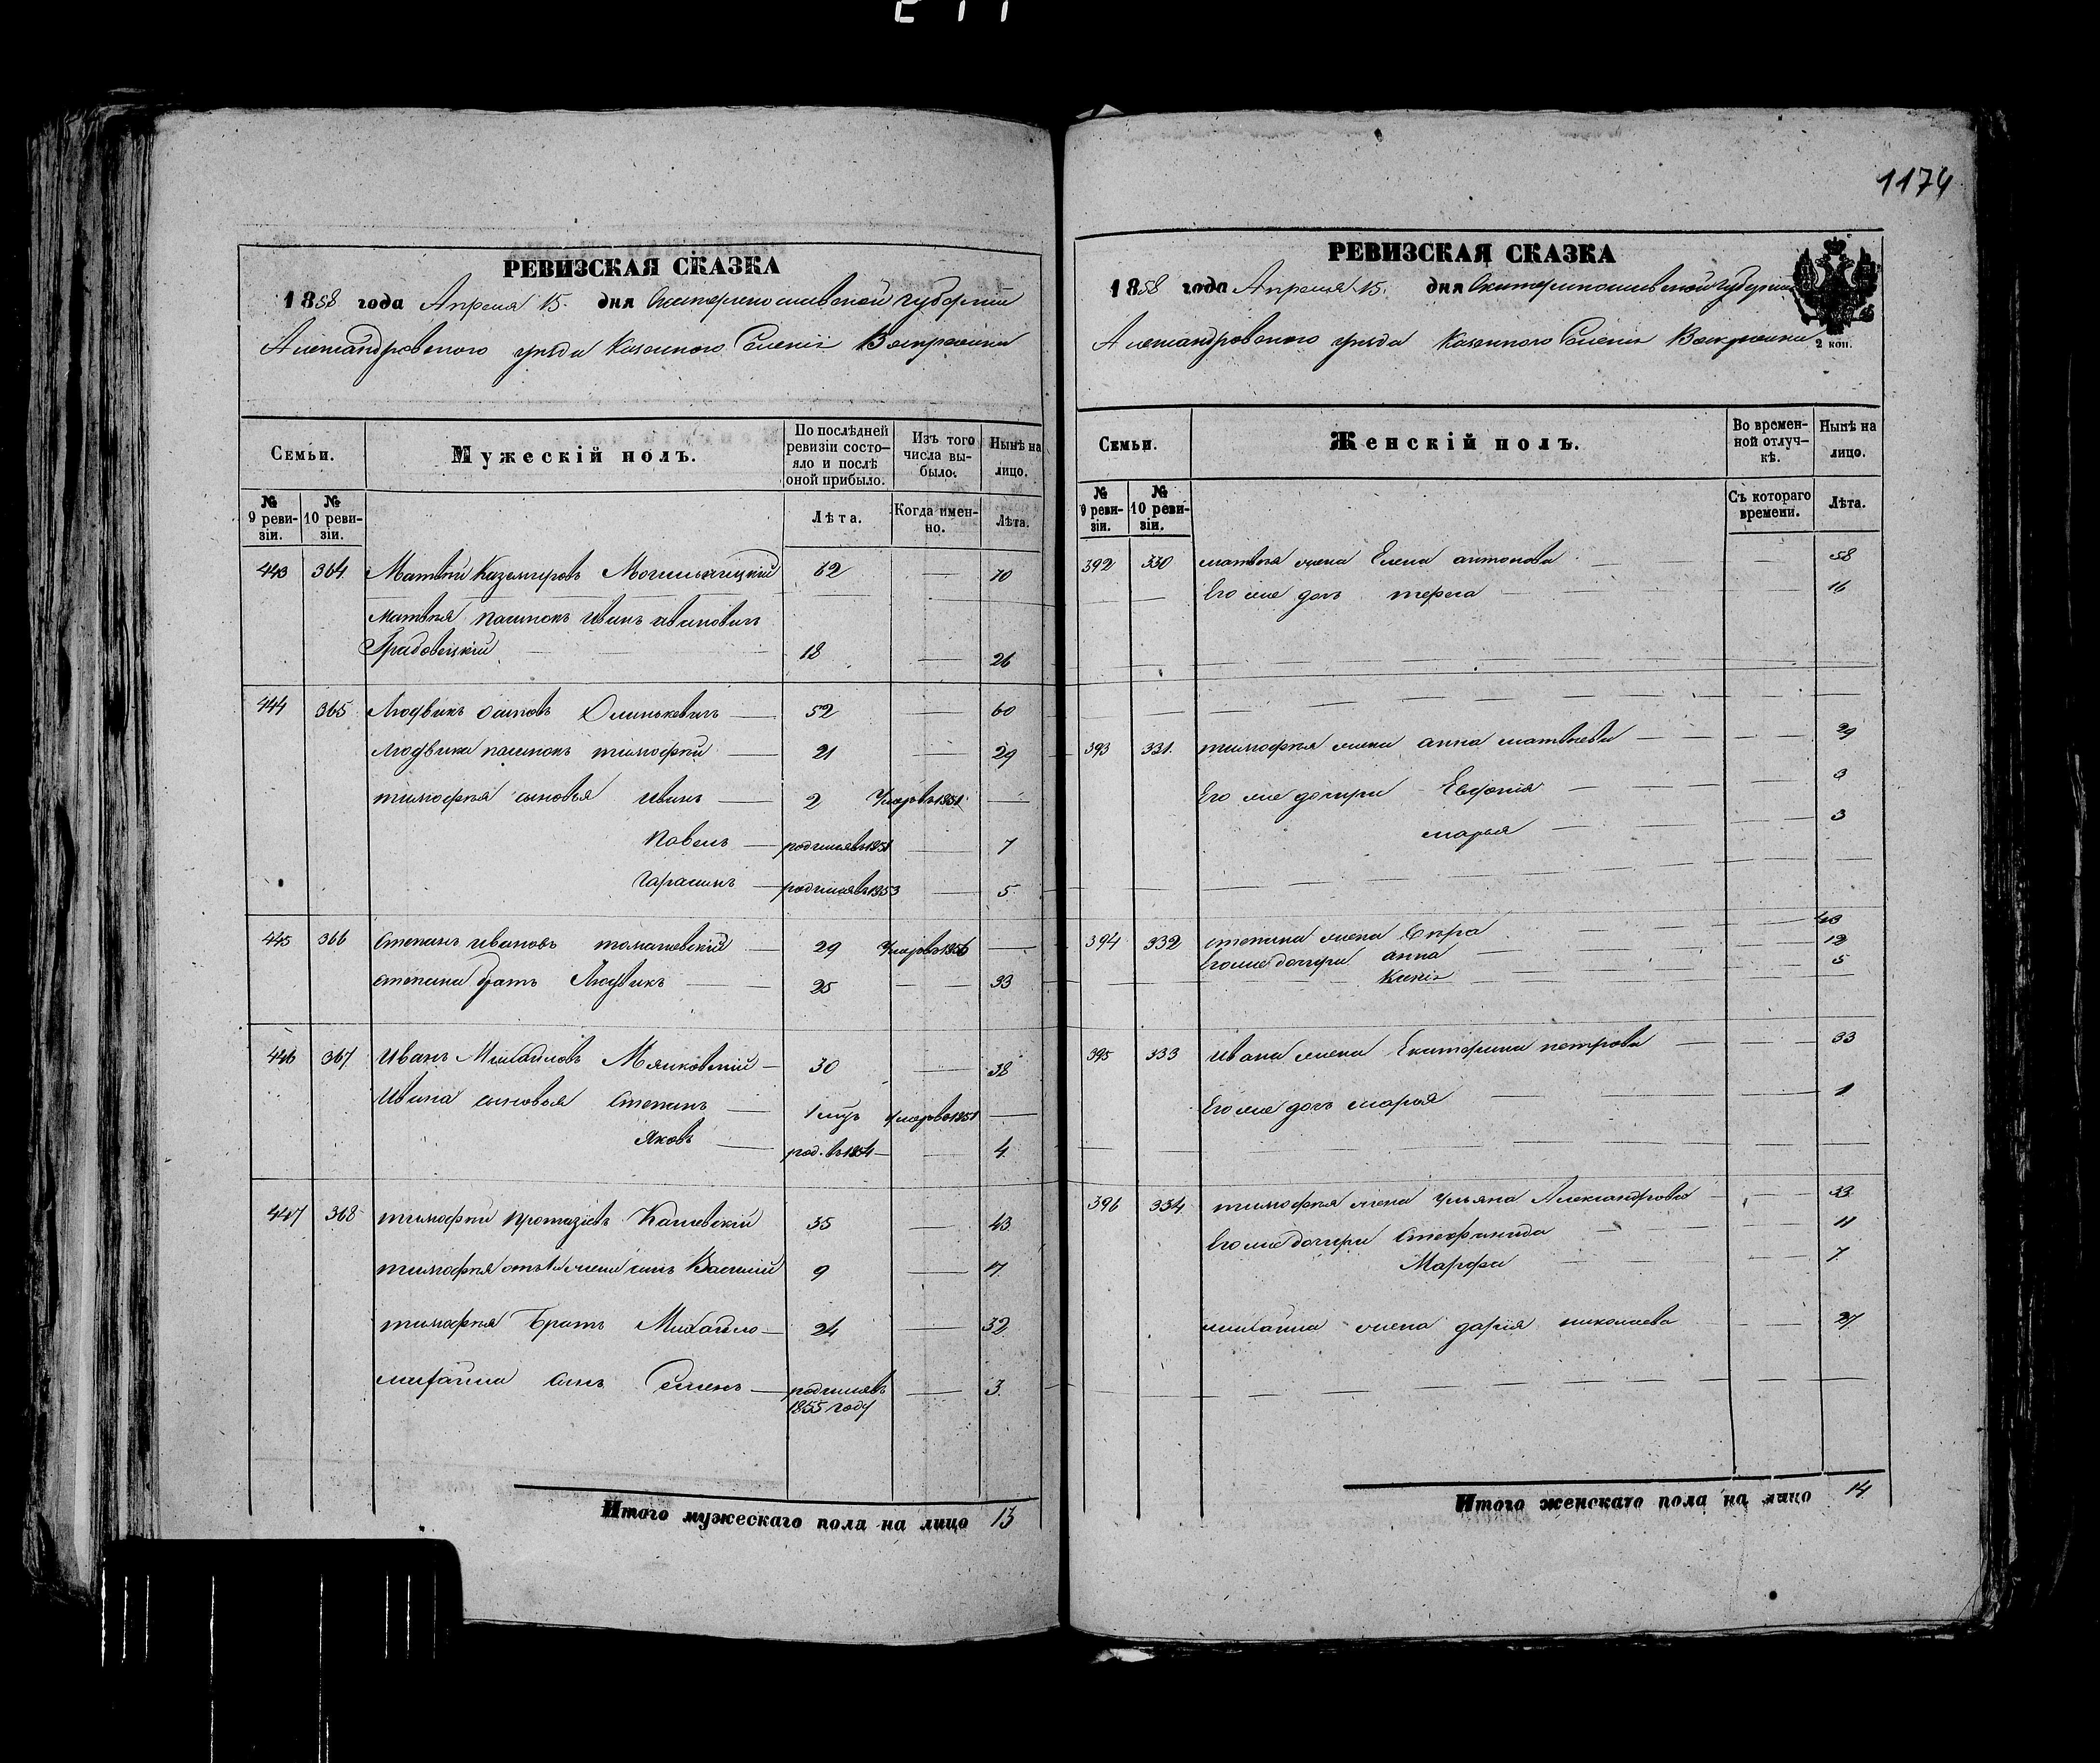 1174
РЕВИЗСКАЯ СКАЗКА
1858 года Апреля 15. дня Екатеринославской губернии
Александровского уезда Казенного Селения Воскресенки
Семьи.
Мужескій полъ.
По послѣдней ревизіи состояло и послѣ оной прибыло.
Изъ того числа выбыло.
Нынѣ на лицо.
№ 9 ревизіи.
№ 10 ревизіи.
Лѣта.
Когда именно.
Лѣта.
443 364 Матвѣй Каземировъ 62 — 70
Матвѣя пасынокъ Иванъ Ивановичъ
18 — 26
444 365 Людвикъ Осиповъ Олинькевичъ — 52 — 60
Людвика пасынокъ Тимофѣй — 21 — 29
Тимофѣя сыновья Иванъ — 2 Умеръ въ 1851 —
Павелъ — родился въ 1851 — 7
Гарасимъ — родился въ 1853 — 5
445 366 Степанъ Ивановъ Томашевскій — 29 Умеръ въ 1856 —
Степана братъ Людвикъ — 25 — 33
446 367 Иванъ Михайловъ Мянковскій — 30 — 38
Ивана сыновья Степанъ — 1 умеръ въ 1851 —
Яковъ — род. въ 1854 — 4
447 368 Тимофѣй Протазіевъ Кашевскій 35 — 43
Тимофѣя отъ 1 жены сынъ Василій 9 — 17
Тимофѣя Братъ Михайло — 24 — 32
Михайла сынъ Семенъ — родился въ — 3
1855 году
Итого мужескаго пола на лицо 13
РЕВИЗСКАЯ СКАЗКА
1858 года Апреля 15. дня Екатеринославской губернии
Александровского уезда Казенного Селения Воскресенки
2 коп.
Семьи.
Женскій полъ.
Во временной отлучкѣ.
Нынѣ на лицо.
№ 9 ревизіи.
№ 10 ревизіи.
Съ котораго времени.
Лѣта.
392 330 Матвѣя жена Елена Антонова — — 58
Его же дочь Тереса — — 16
393 331. Тимофѣя жена Анна Матвѣева — — 29
Его же дочери — — 3
Марья — — 3
394 332 Степана жена — 40
Его же дочери Анна — — 12
Ксенія — — 5
395 333 Ивана жена Екатерина Петрова — — 33
Его же дочь Марья — — 1
396 334 Тимофѣя жена Ульяна Александрова — — 33
Его же дочери Стефанида — — 11
Марфа — — 7
Михайла жена Дарія Николаева — — 27
Итого женскаго пола на лицо 14